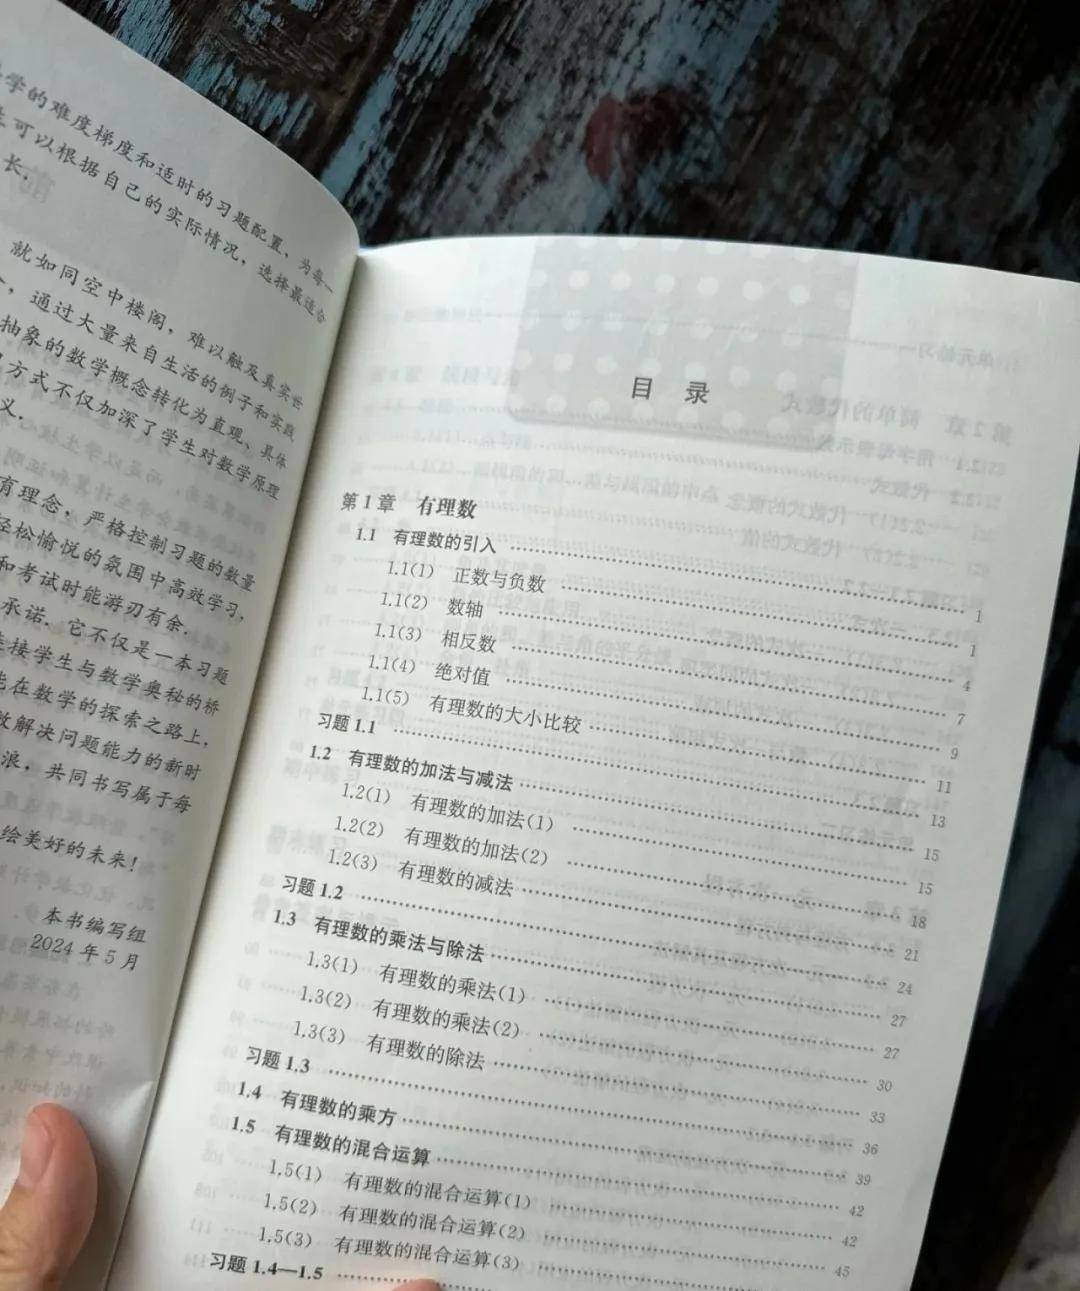 学的难度梯度和适时的习题配置，为每一
可以根据自己的实际情况，选择最适合
长.
就如同空中楼阁，难以触及真实世
，通过大量来自生活的例子和实践
抽象的数学概念转化为直观、具体
方式不仅加深了学生对数学原理
义.
有理念，严格控制习题的数量
轻松愉悦的氛围中高效学习，
和考试时能游刃有余.
承诺. 它不仅是一本习题
连接学生与数学奥秘的桥
能在数学的探索之路上，
效解决问题能力的新时
浪，共同书写属于每
绘美好的未来！
本书编写组
2024 年 5 月
目 录
第 1 章 有理数
1.1 有理数的引入 1
1.1(1) 正数与负数 1
1.1(2) 数轴 4
1.1(3) 相反数 7
1.1(4) 绝对值 9
1.1(5) 有理数的大小比较 11
习题 1.1 13
1.2 有理数的加法与减法 15
1.2(1) 有理数的加法(1) 15
1.2(2) 有理数的加法(2) 18
1.2(3) 有理数的减法 21
习题 1.2 24
1.3 有理数的乘法与除法 27
1.3(1) 有理数的乘法(1) 27
1.3(2) 有理数的乘法(2) 30
1.3(3) 有理数的除法 33
习题 1.3 36
1.4 有理数的乘方 39
1.5 有理数的混合运算 42
1.5(1) 有理数的混合运算(1) 42
1.5(2) 有理数的混合运算(2) 45
1.5(3) 有理数的混合运算(3)
习题 1.4—1.5